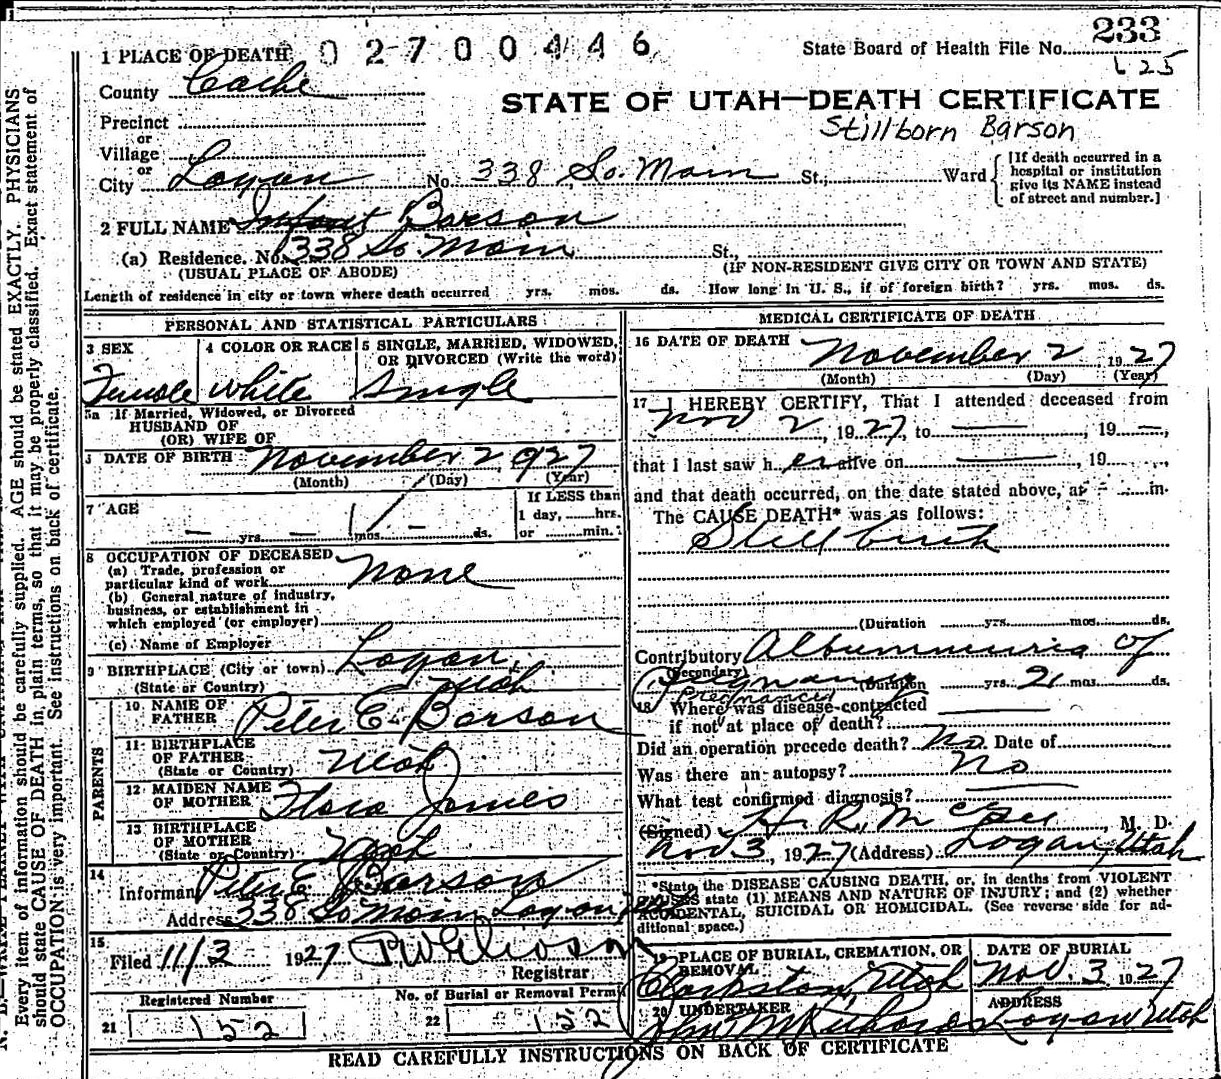 1 PLACE OF DEATH 02700446
State Board of Health File No. 233
625
County Cache
STATE OF UTAH—DEATH CERTIFICATE
Precinct
Stillborn Barson
or
Village
or
City Logan No. 338 So. Main St., Ward
[If death occurred in a
hospital or institution
give its NAME instead
of street and number.]
2 FULL NAME Infant Barson
(a) Residence. No. 338 So Main St.,
(USUAL PLACE OF ABODE) (IF NON-RESIDENT GIVE CITY OR TOWN AND STATE)
Length of residence in city or town where death occurred yrs. mos. ds. How long in U. S., if of foreign birth? yrs. mos. ds.
PERSONAL AND STATISTICAL PARTICULARS
3 SEX
Female
4 COLOR OR RACE
White
5 SINGLE, MARRIED, WIDOWED,
OR DIVORCED (Write the word)
Single
5a If Married, Widowed, or Divorced
HUSBAND OF
(OR) WIFE OF
DATE OF BIRTH November 2 1927
(Month) (Day) (Year)
7 AGE
— yrs. — mos. — ds.
If LESS than
1 day, hrs.
or min.
8 OCCUPATION OF DECEASED
(a) Trade, profession or
particular kind of work None
(b) General nature of industry,
business, or establishment in
which employed (or employer)
(c) Name of Employer
9 BIRTHPLACE (City or town) Logan,
(State or Country) Utah
PARENTS
10 NAME OF
FATHER Peter E Barson
11 BIRTHPLACE
OF FATHER
(State or Country) Utah
12 MAIDEN NAME
OF MOTHER Flora James
13 BIRTHPLACE
OF MOTHER
(State or Country) Utah
14
Informant Peter E Barson
Address 338 So Main Logan
15
Filed 11/3 1927
Registrar
Registered Number
21 152
No. of Burial or Removal Permit
22 152
MEDICAL CERTIFICATE OF DEATH
16 DATE OF DEATH November 2, 1927
(Month) (Day) (Year)
17 I HEREBY CERTIFY, That I attended deceased from
Nov 2, 1927, to —, 19 —,
that I last saw her alive on —, 19
and that death occurred, on the date stated above, at — m.
The CAUSE DEATH* was as follows:
Still birth
(Duration yrs. mos. ds.
Contributory Albuminuria of
(Secondary)
Pregnancy (Duration yrs. 2 mos. ds.
Pregnancy
18 Where was disease contracted
if not at place of death?
Did an operation precede death? No. Date of
Was there an autopsy? No
What test confirmed diagnosis?
(Signed) H. R. McGee, M. D.
Nov 3, 1927 (Address) Logan, Utah
*State the DISEASE CAUSING DEATH, or, in deaths from VIOLENT
CAUSES state (1) MEANS AND NATURE OF INJURY; and (2) whether
ACCIDENTAL, SUICIDAL OR HOMICIDAL. (See reverse side for ad-
ditional space.)
19 PLACE OF BURIAL, CREMATION, OR
REMOVAL
Clarkston, Utah
DATE OF BURIAL
Nov. 3 1927
20 UNDERTAKER
ADDRESS
Logan Utah
READ CAREFULLY INSTRUCTIONS ON BACK OF CERTIFICATE
Every item of information should be carefully supplied. AGE should be stated EXACTLY. PHYSICIANS
should state CAUSE OF DEATH in plain terms, so that it may be properly classified. Exact statement of
OCCUPATION is very important. See instructions on back of certificate.